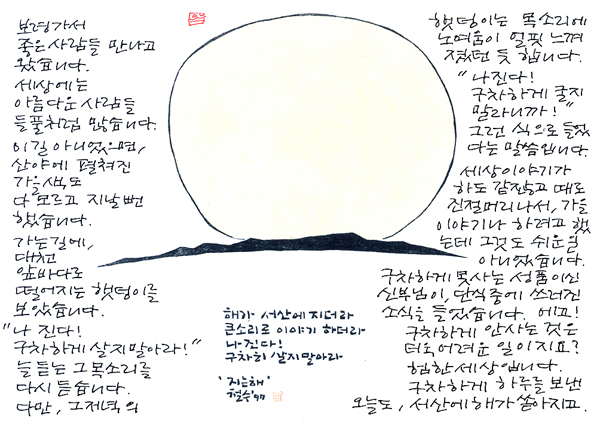 보령가서
좋은 사람들 만나고
왔습니다.
세상에는
아름다운 사람들
들풀처럼 많습니다.
이길 아니었으면,
산야에 펼쳐진
가을색도
다 모르고 지날뻔
했습니다.
가는길에,
대천
앞바다로
떨어지는 햇덩이를
보았습니다.
"나 진다!
구차하게 살지말아라!"
늘 듣는 그목소리를
다시 듣습니다.
다만, 그제녁의
햇덩이는 목소리에
노여움이 얼핏 느껴
졌던 듯 합니다.
"나진다!
구차하게 굴지
말라니까!"
그런 식으로 들렸
다는 말씀입니다.
세상이야기가
하도 같잖고 때로
진절머리나서, 가을
이야기나 하려고 했
는데 그것도 쉬운일
아니었습니다.
구차하게 못사는 성품이신
신부님이, 단식중에 쓰러진
소식을 들었습니다. 에고!
구차하게 안사는 것은
더욱 어려운 일이지요?
험한 세상입니다.
구차하게 하루를 보낸
오늘도, 서산에 해가 쏟아지고.
해가 서산에 지더라
큰소리로 이야기 하더라
나진다!
구차히 살지말아라
'지는해'
철수 '97